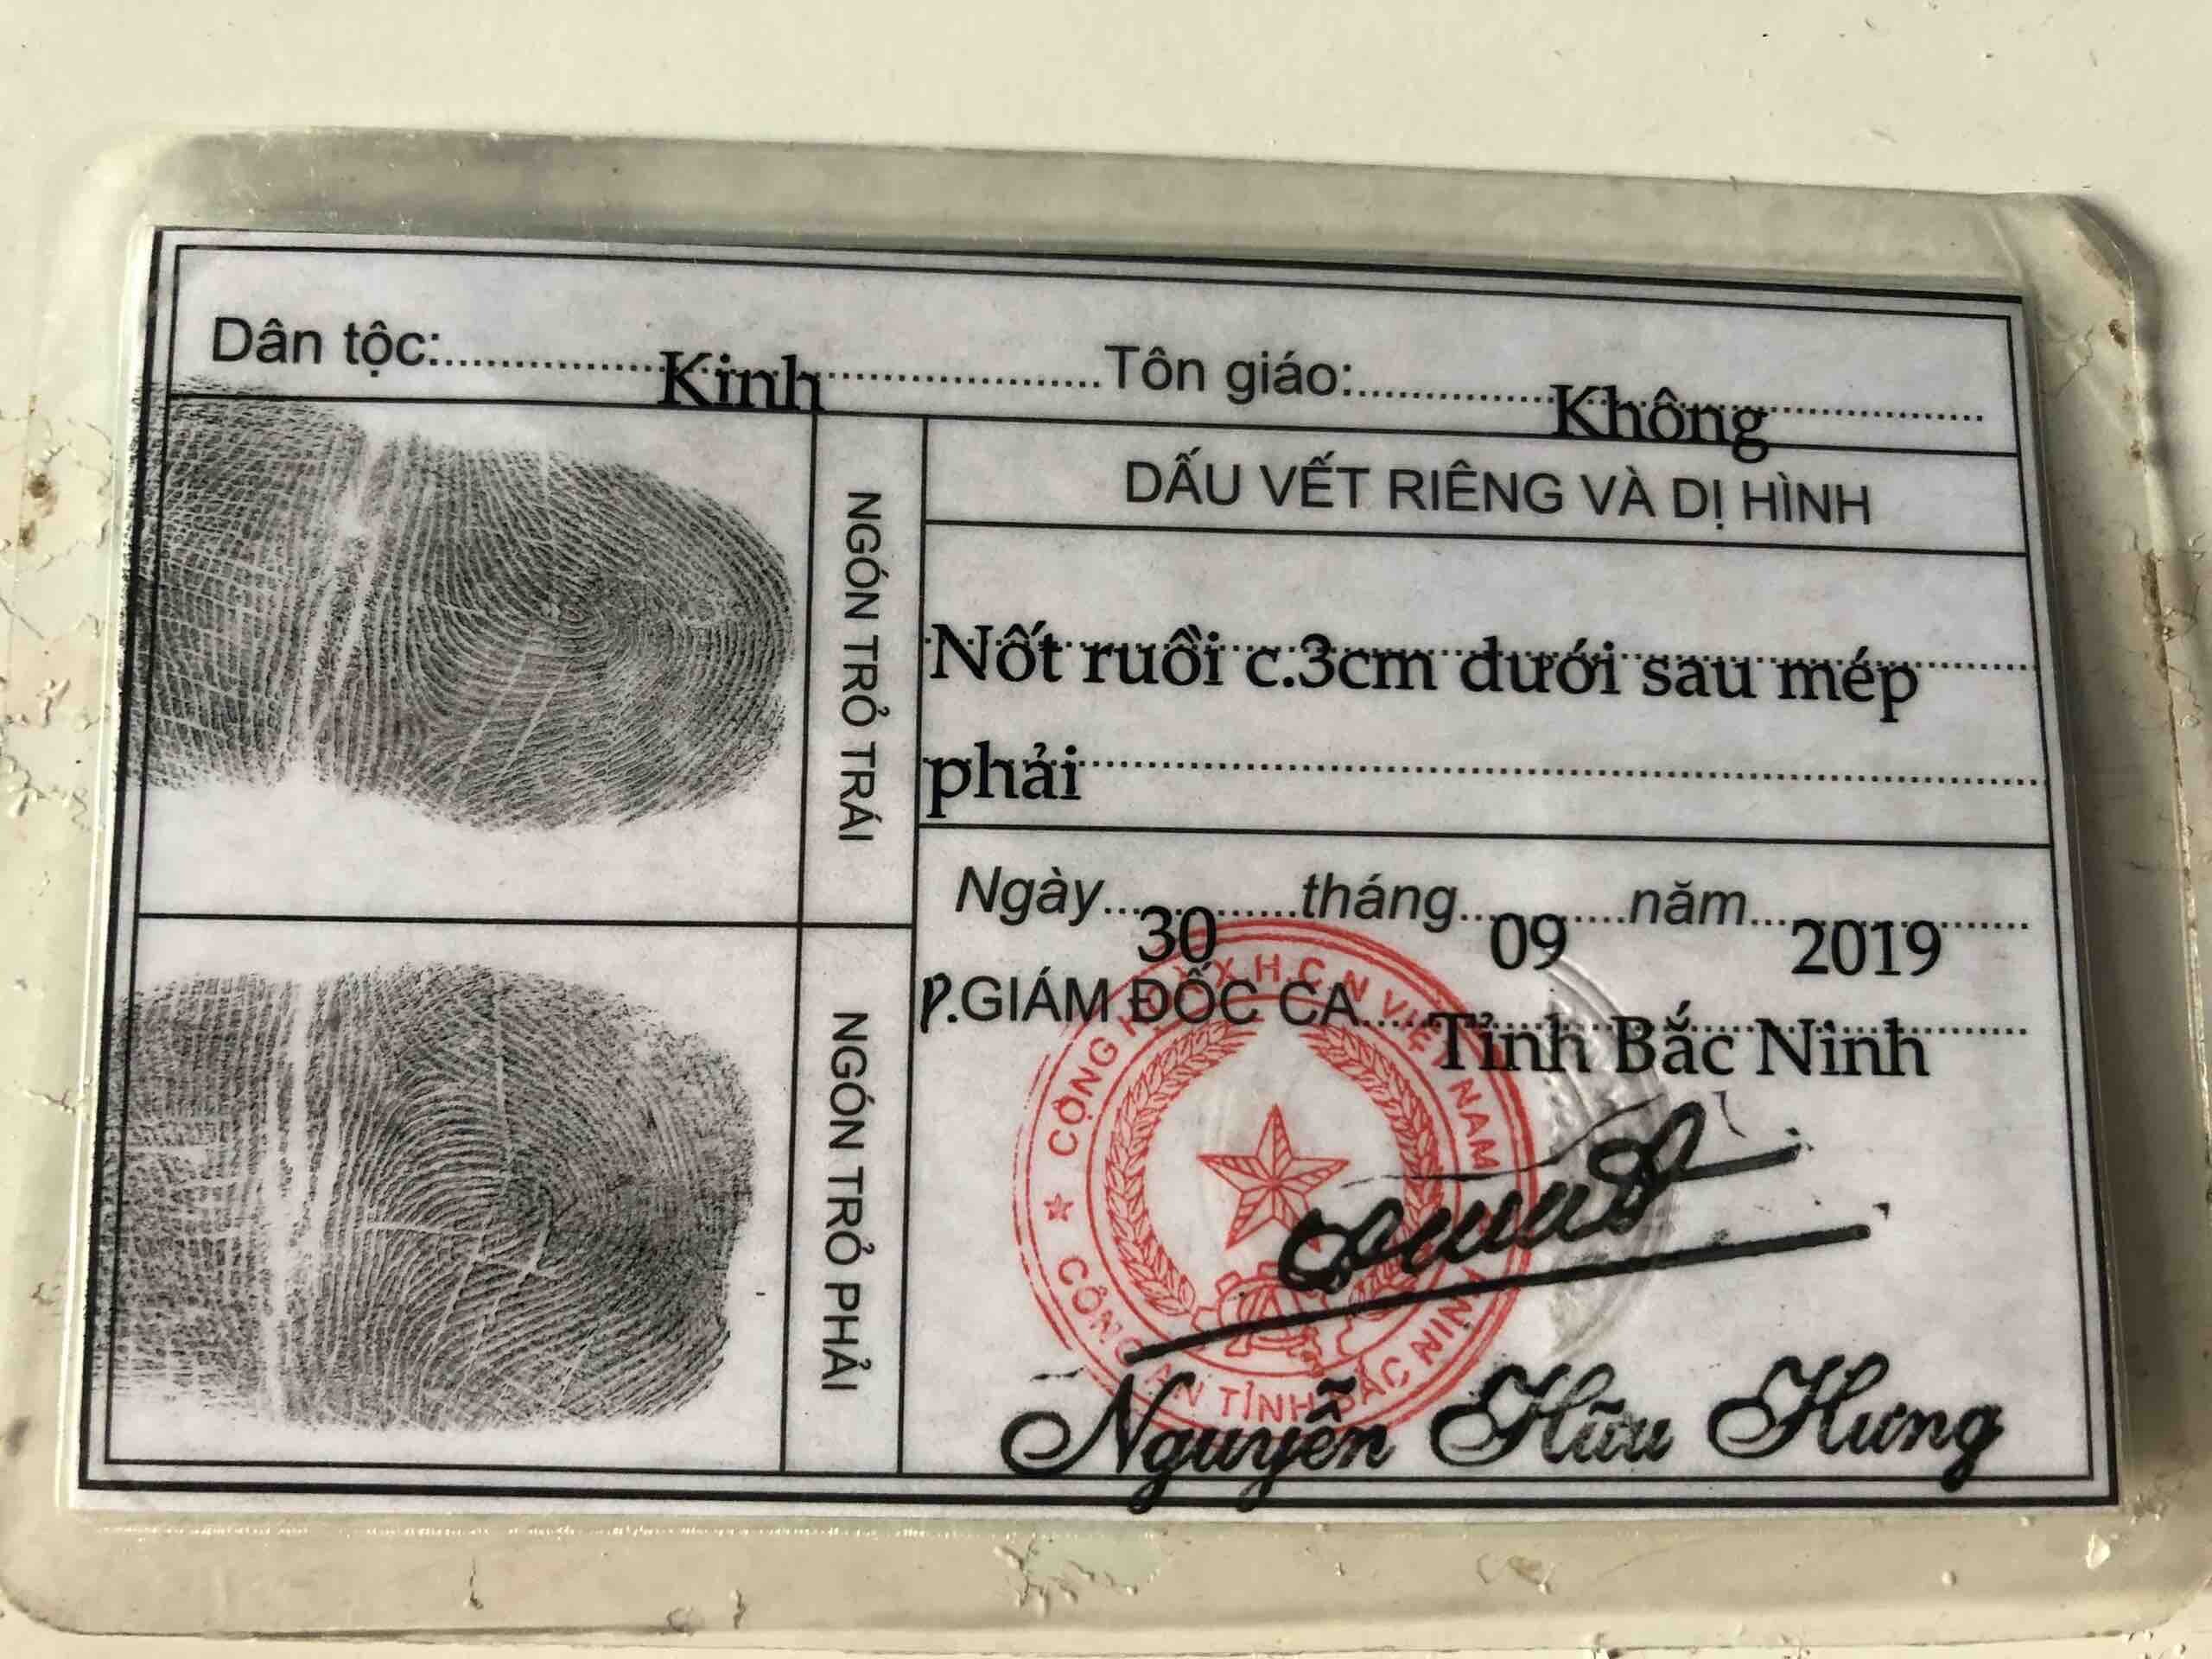 Dân tộc: Kinh Tôn giáo: Không
NGÓN TRỎ TRÁI
DẤU VẾT RIÊNG VÀ DỊ HÌNH
Nốt ruồi c.3cm dưới sau mép
phải
Ngày 30 tháng 09 năm 2019
P.GIÁM ĐỐC CA Tỉnh Bắc Ninh
NGÓN TRỎ PHẢI
CỘNG HÒA X.H.C.N VIỆT NAM
CÔNG AN TỈNH BẮC NINH
Nguyễn Hữu Hưng